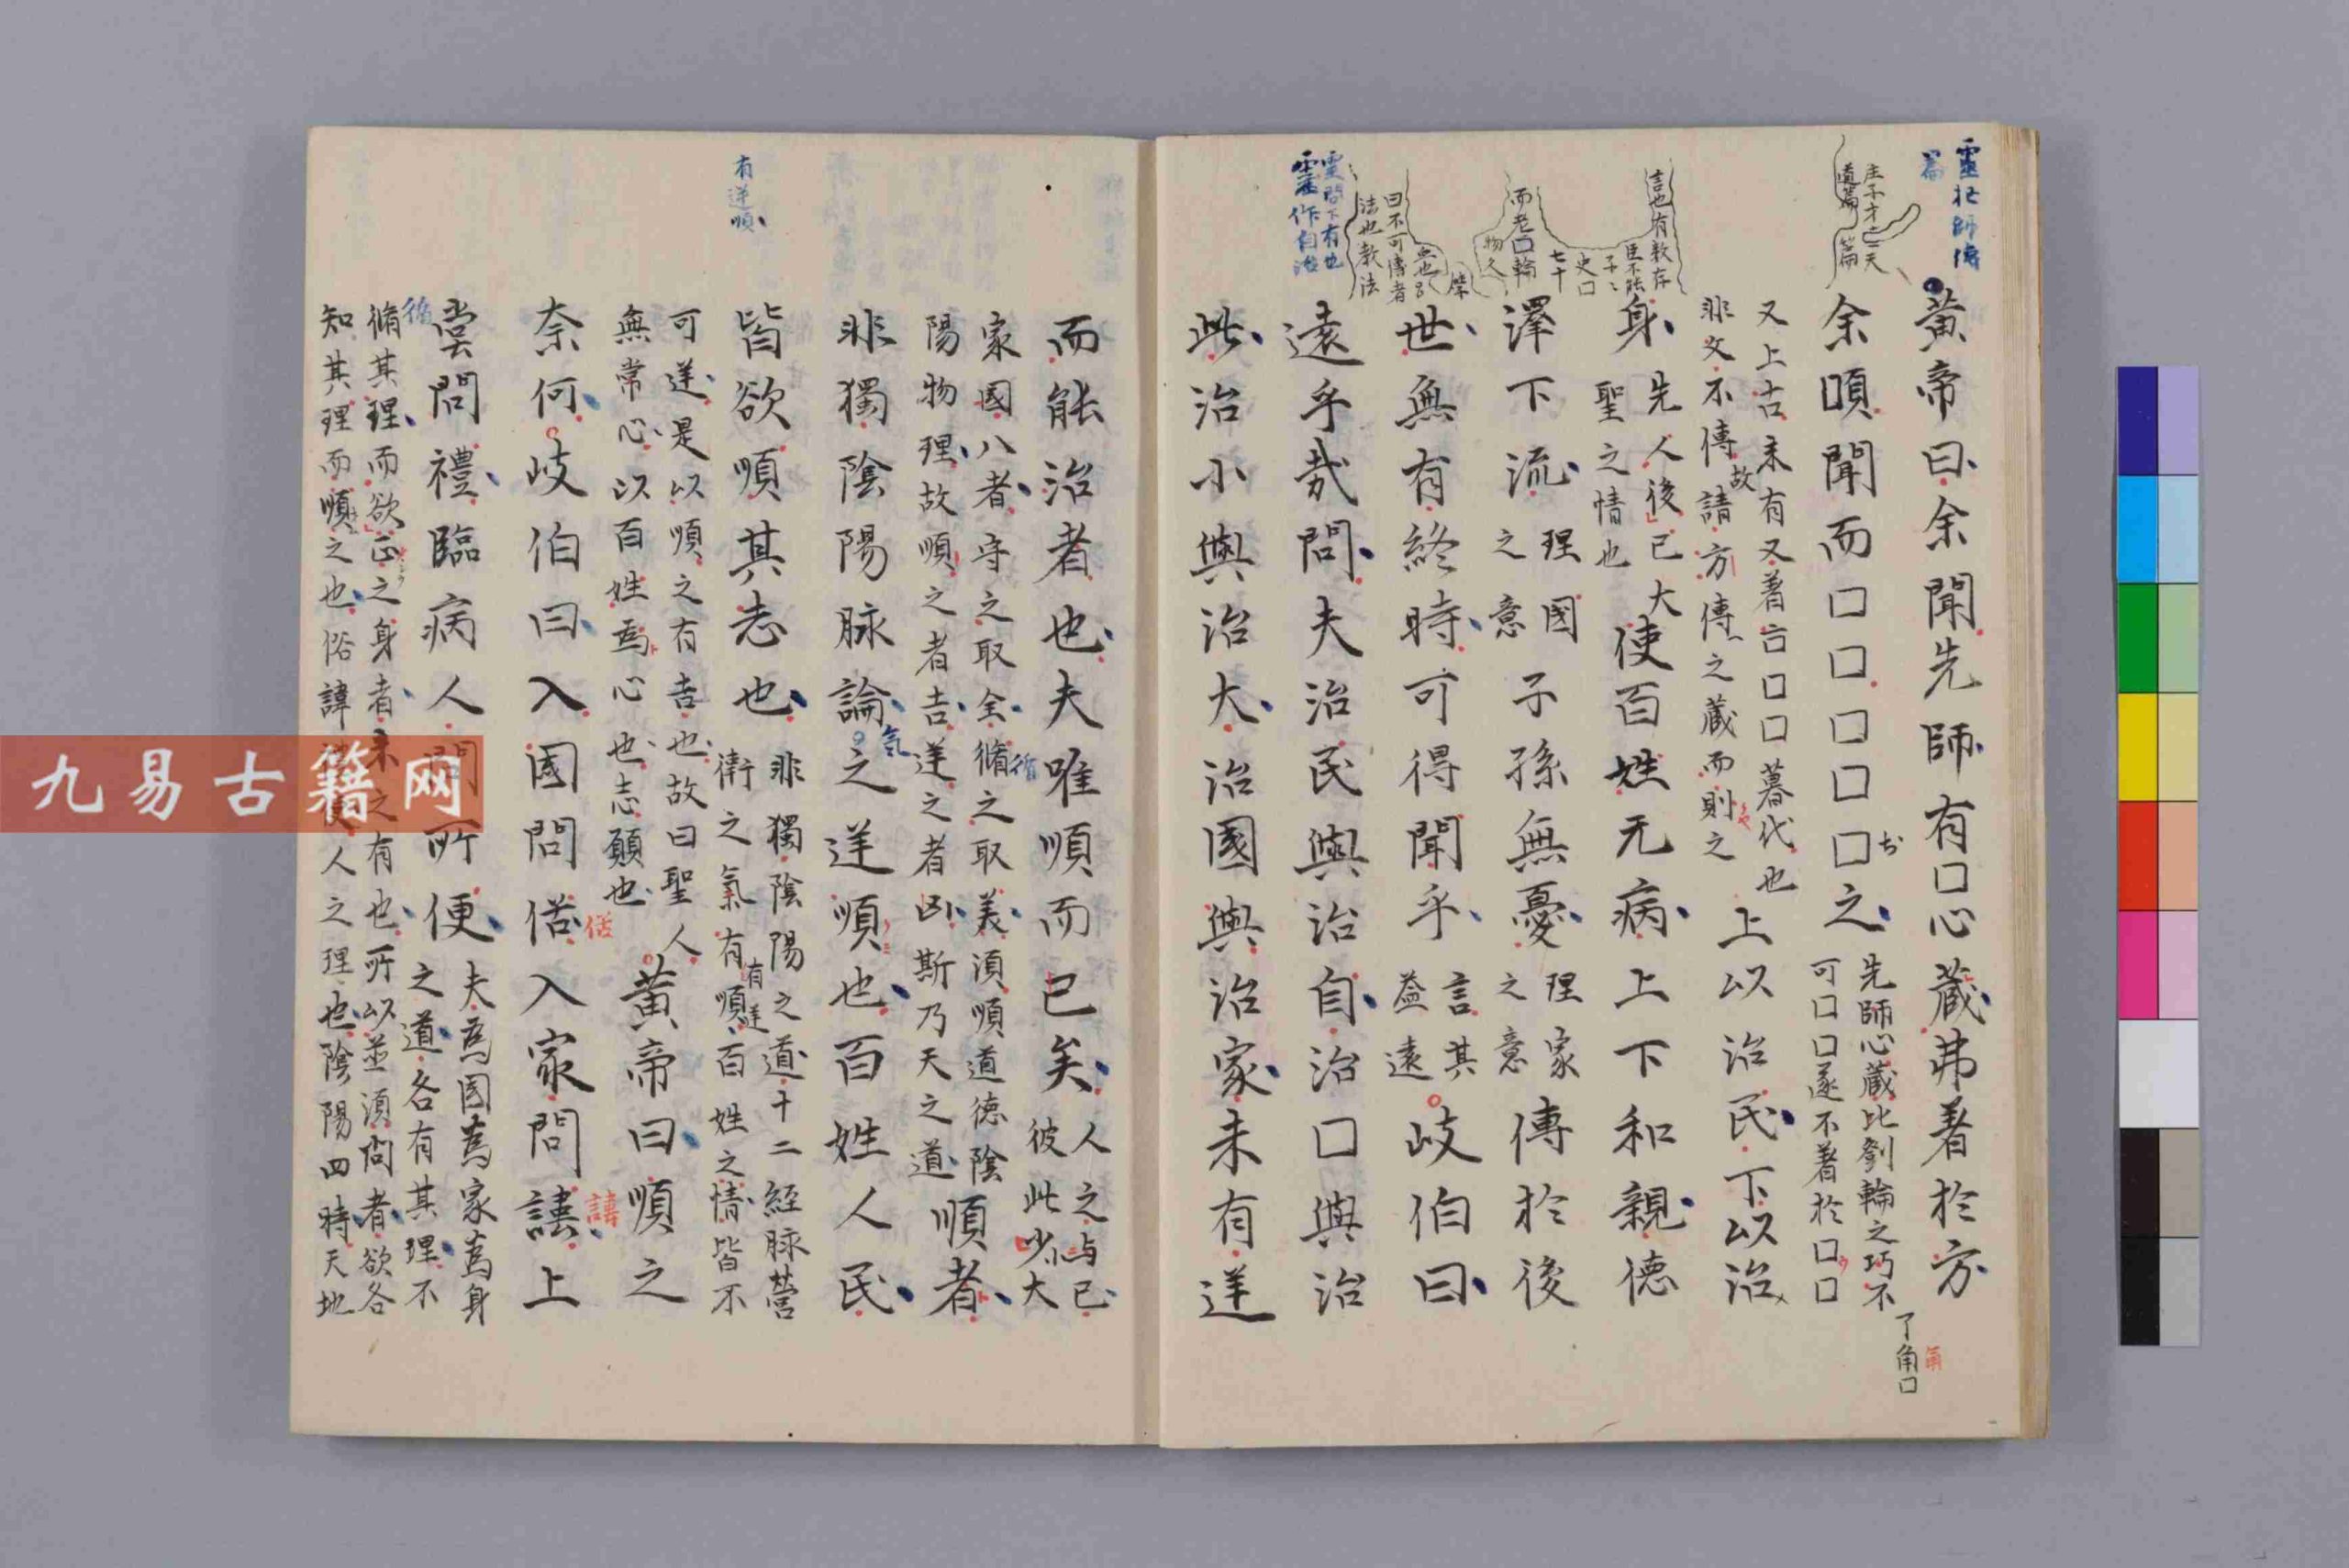 靈廿九師傳
篇
黃帝曰余聞先師有口心藏弗著於方
庄子才十三天
道篇
篇
余願聞而口口口口口之
先師心藏比劉輪之巧不
可口口遂不著於口口
了角口
又上古未有又著言口口暮代也
非文不傳故請方傳之藏而則之
上以治民下以治
身
先人後已大
聖之情也
使百姓无病上下和親德
言也有数存
臣不能
子〻
史口
七十
而老口輪
物久
澤下流
理國
之意
子孫無憂
理家
之意
傳於後
世無有終時可得聞乎
言其
益遠
岐伯曰
曰不可傳者
法也教法
遠乎哉問夫治民與治自治口與治
靈問下有也
靈作自治
此治小與治大治國與治家未有逆
而能治者也夫唯順而已矣
人之与已
彼此少大
家國八者守之取全脩之取美須順道德陰
陽物理故順之者吉逆之者凶斯乃天之道
順者
非獨陰陽脉論氣之逆順也百姓人民
有逆順
皆欲順其志也
非獨陰陽之道十二經脉營
衛之氣有順有逆百姓之情皆不
可逆是以順之有吉也故曰聖人
無常心以百姓為心也志願也
黃帝曰順之
奈何岐伯曰入國問俗入家問諱上
堂問禮臨病人問所便
夫為國為家為身
之道各有其理不
脩其理而欲正之身者未之有也所以並須問者欲各
知其理而順之也俗諱人之理也陰陽四時天地
九易古籍网